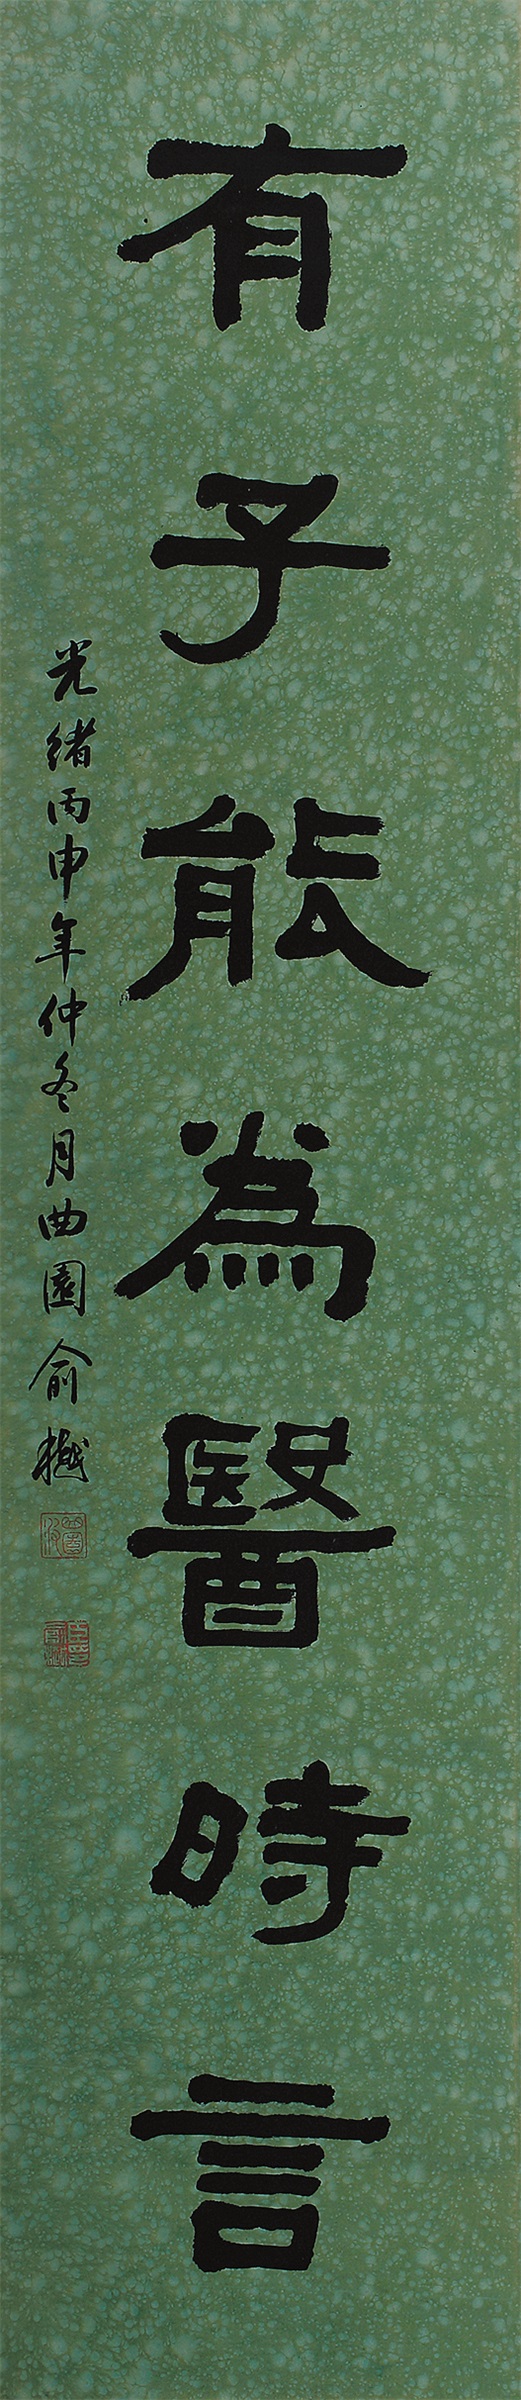 有子能為醫時言
光緒丙申年仲冬月曲園俞樾